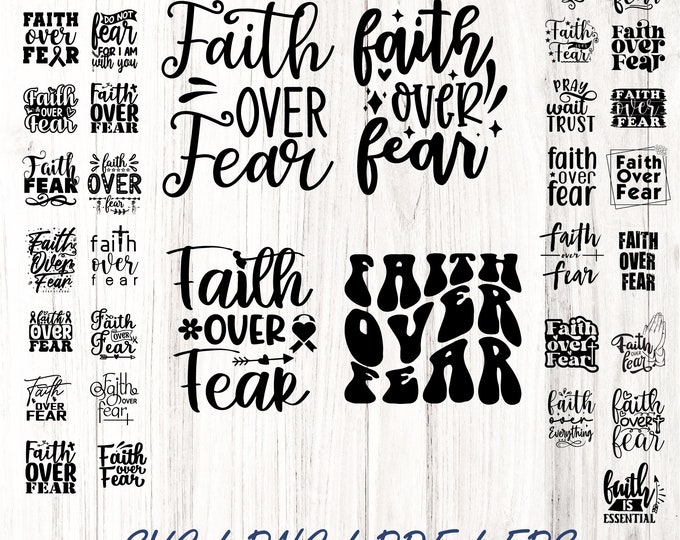 FAITH
over
FEAR
DO NOT
fear
FOR I AM
with you
Faith
OVER
Fear
faith
OVER
fear
Faith
Over
Fear
Faith
OVER
FEAR
Faith
FEAR
faith
OVER
fear
Faith
Over
Fear
faith
over
fear
faith
OVER
FEAR
Faith
OVER
Fear
Faith
OVER
FEAR
Faith
OVER
fear
Faith
OVER
FEAR
Faith
over
Fear
Faith
OVER
Fear
FAITH
OVER
FEAR
Faith
Fear
Faith
over
Fear
PRAY
wait
TRUST
FAITH
over
FEAR
faith
over
fear
Faith
Over
Fear
faith
over
fear
FAITH
OVER
FEAR
Faith
over
Fear
Faith
OVER
fear
faith
over
Everything
faith
OVER
fear
faith
IS
ESSENTIAL